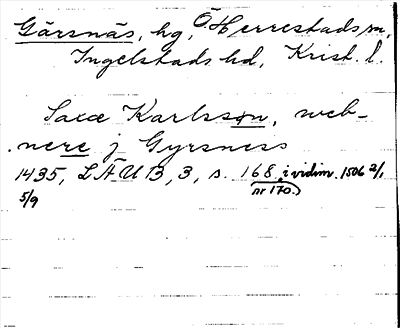 Gärsnäs, hg, Ö. Herrestads sn,
Ingelstads hd, Krist. l.
Saxæ Karlsson, web-
nere j Gyrsness
1435, LÄUB, 3, s. 168, i vidim. 1506 2/1
5/9 nr 170.)